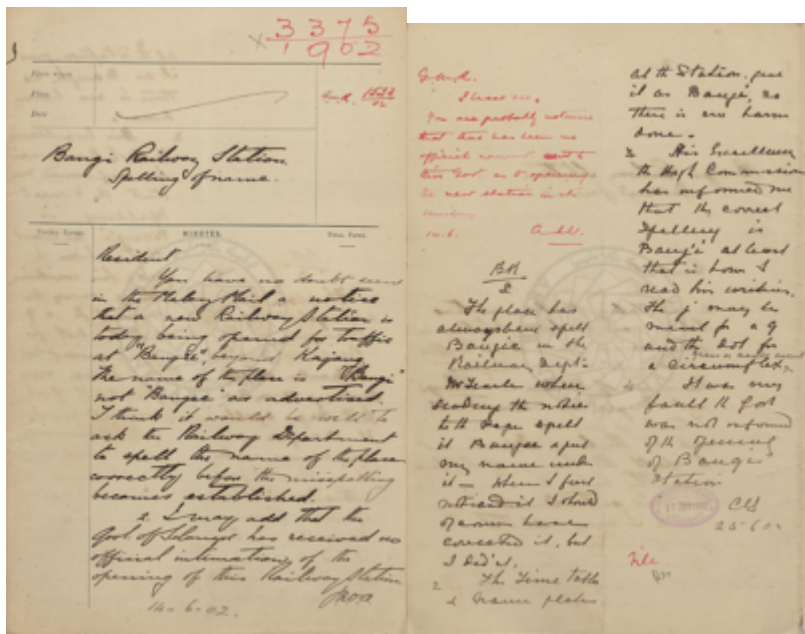 3375
1902
Bangi Railway Station.
Spelling of name.
MINUTES.
Resident
You have no doubt seen
in the Malay Mail a notice
that a new Railway Station is
today being opened for traffic
at "Bangee", beyond Kajang
The name of the place is "Bangi"
not "Bangee" as advertised.
I think it would be well to
ask the Railway Department
to spell the name of the place
correctly before the misspelling
becomes established.
2. I may add that the
Govt of Selangor has received no
official intimation of the
opening of this Railway Station
14-6-02.
You are probably not aware
that there has been no
official
this Govt. as to opening
new station in the
14.6.
The place has
always been spelt
Bangie in the
Railway Dept:
when
sending the notice
to the spelt
it Bangee & put
my name under
it - When I first
noticed it I should
of course have
corrected it, but
I did'nt.
2 The Time Table
&
at the Station, give
it as Bangi, so
there is no harm
done.
3 His Excellency
the High Commissioner
has informed me
that the correct
Spelling is
at least
that is how I
read his writing.
The j may be
meant for a g
and the dot for
a circumflex,
4 It was my
fault the Govt
was not informed
of the opening
of Bangi
Station
25-6-02
File